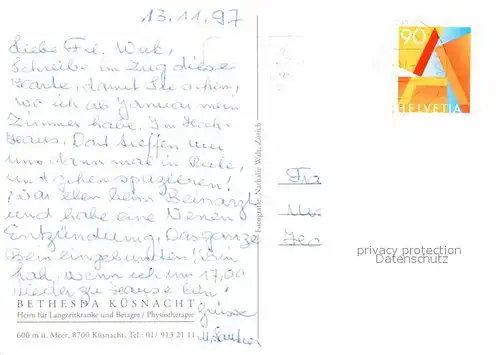 13.11.97
Liebe Frl. Wuk,
Schreibe im Zug diese
Karte, damit Sie sehen,
wo ich ab Januar mein
Zimmer habe. Im Hoch-
Haus. Dort treffen wir
uns dann mal in Ruhe,
und gehen spazieren!
War eben beim Beinarzt
und habe eine Venen
Entzündung. Das ganze
Bein eingebunden! Bin
froh, wenn ich um 17,00
wieder zu Hause bin.
Grüsse
BETHESDA KÜSNACHT
Heim für Langzeitkranke und Betagte / Physiotherapie
600 m ü. Meer, 8700 Küsnacht, Tel.: 01/ 913 21 11
Fotografie: Nathalie Wüh, Zürich
90
A
HELVETIA
privacy protection
Datenschutz